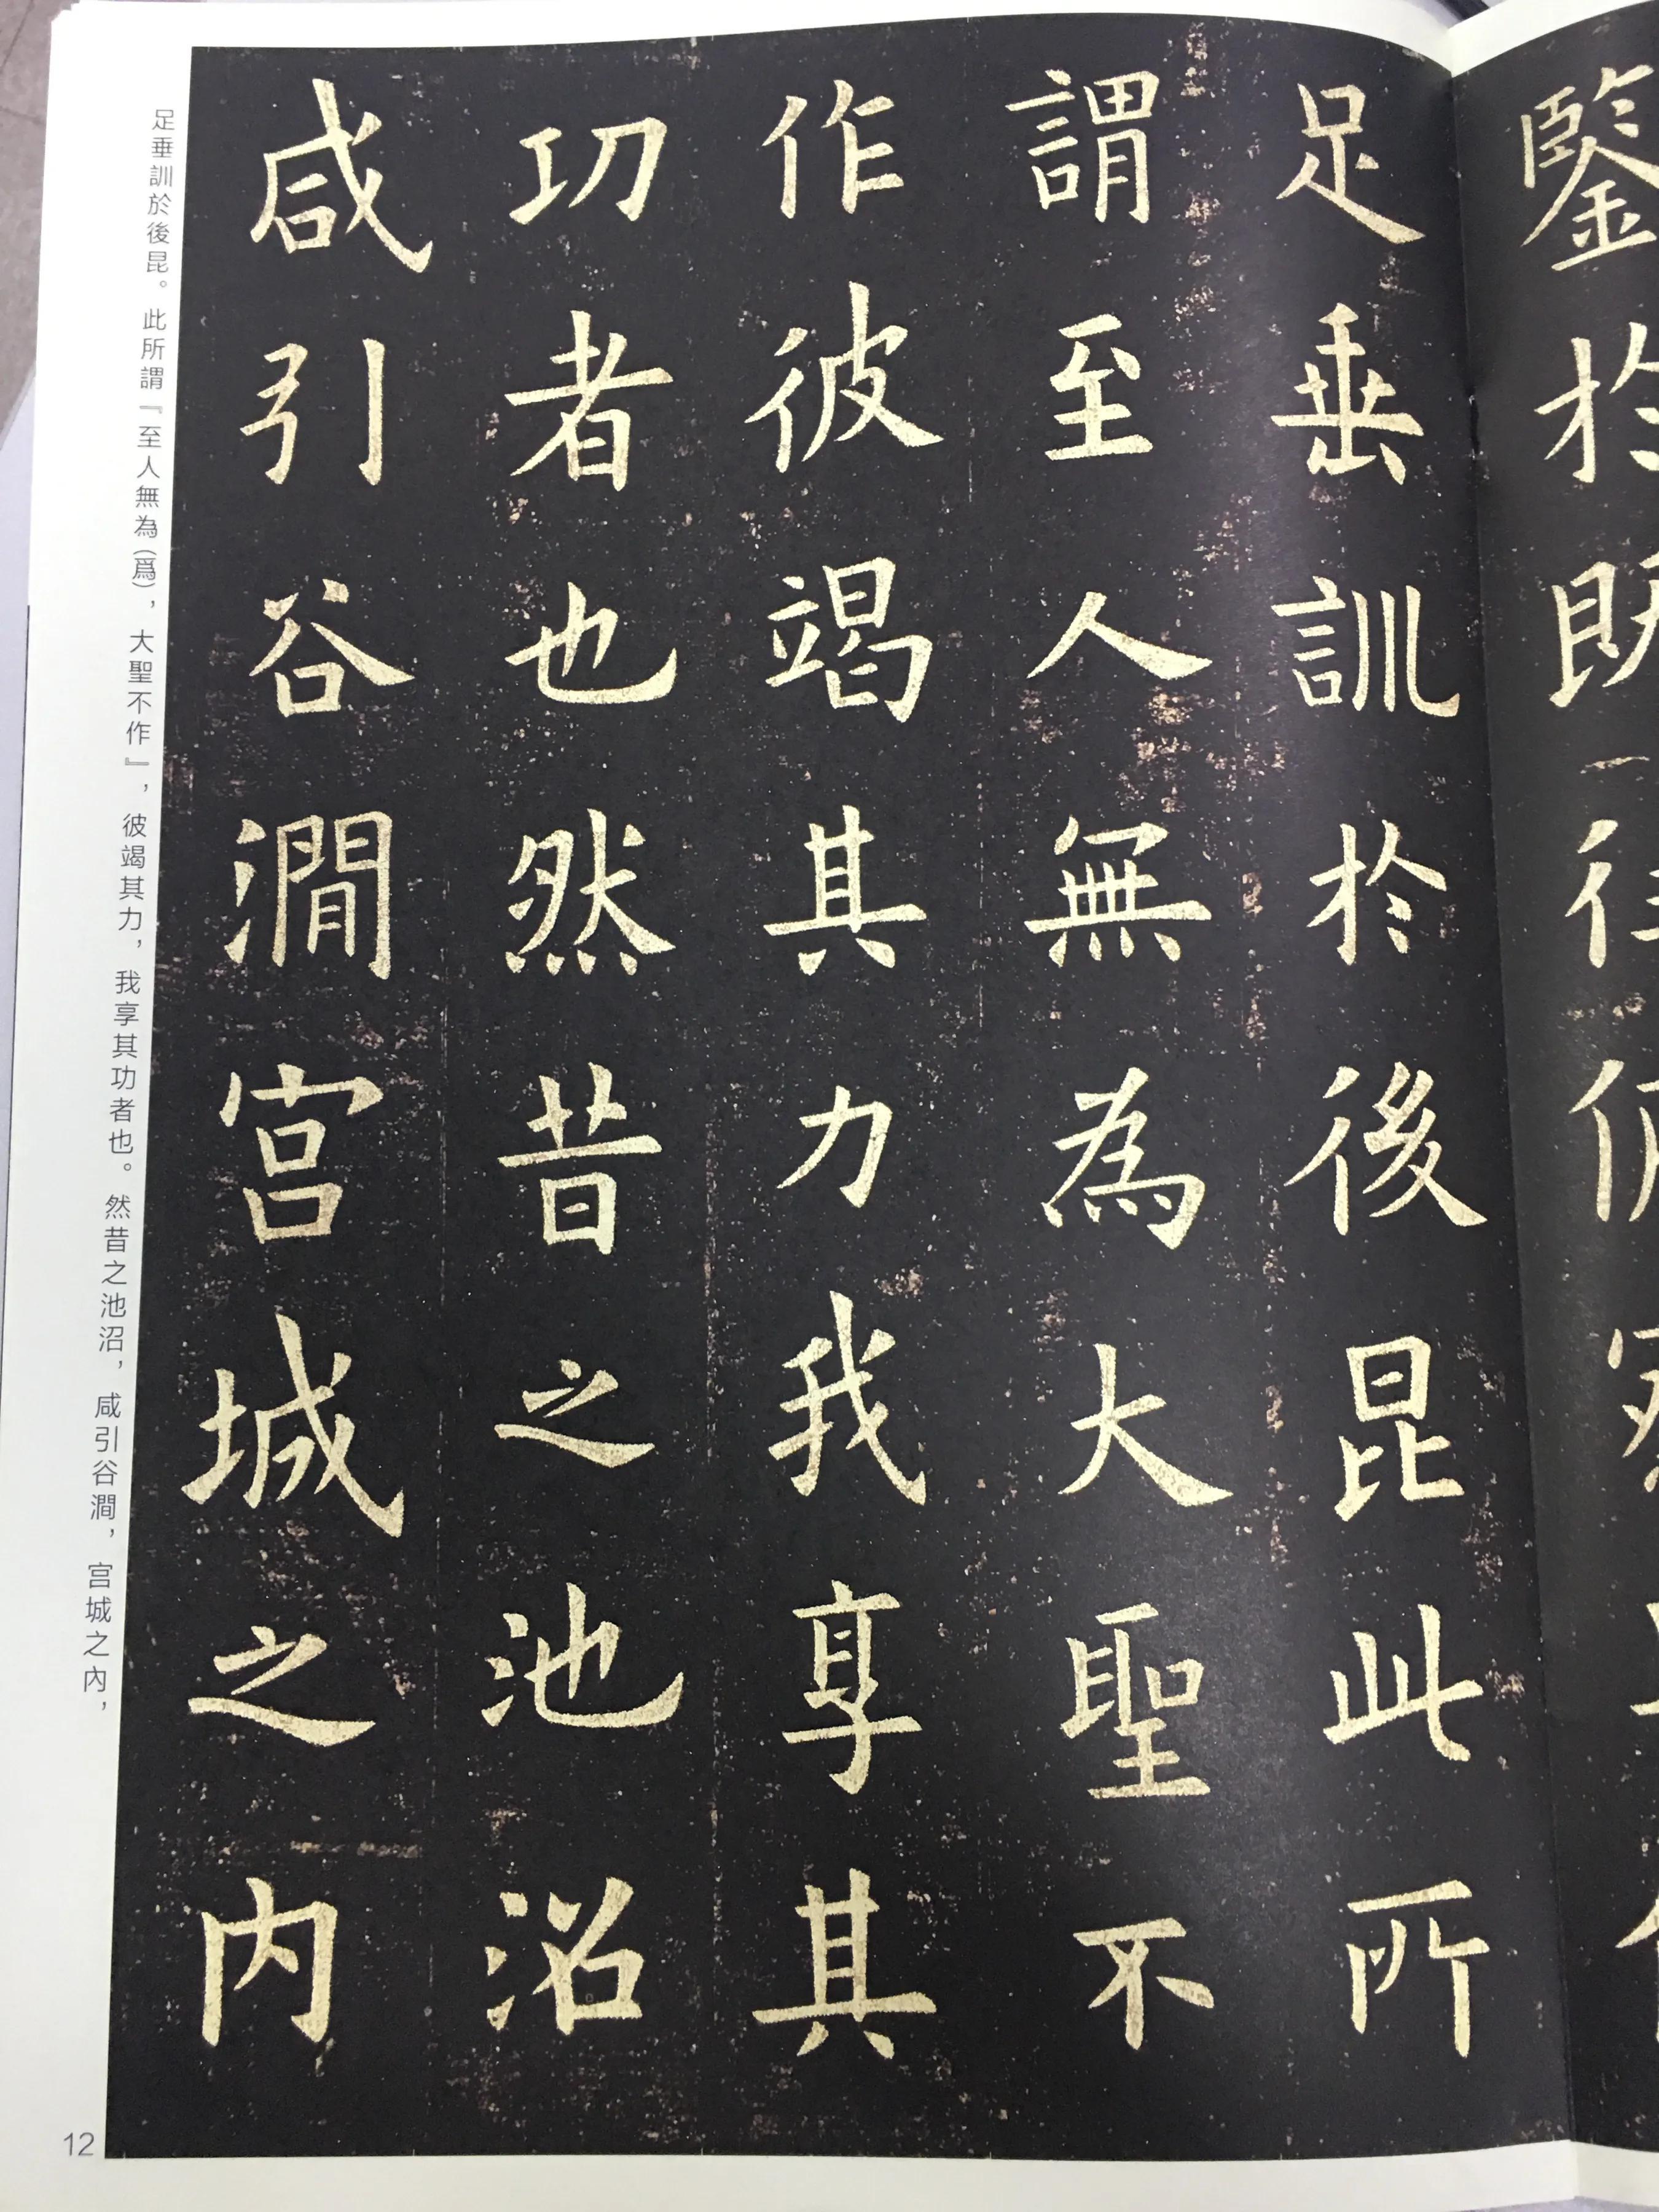 鑒於既往俯察
足垂訓於後昆此所
謂至人無為大聖不
作彼竭其力我享其
功者也然昔之池沼
咸引谷澗宮城之內
足垂訓於後昆。此所謂『至人無為(爲)，大聖不作』，彼竭其力，我享其功者也。然昔之池沼，咸引谷澗，宮城之內，
12